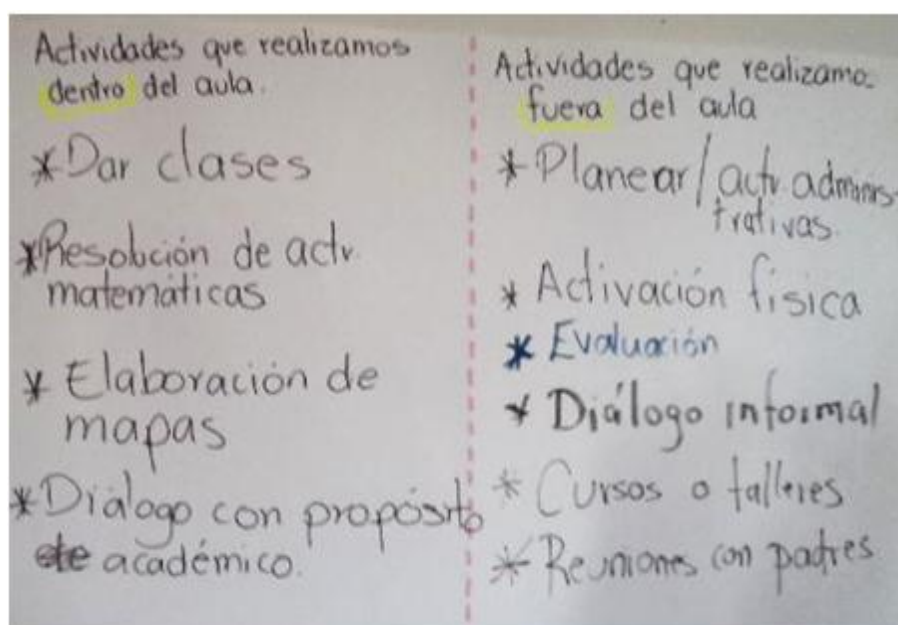 Actividades que realizamos
dentro del aula.
*Dar clases
*Resolución de actv.
matemáticas
* Elaboración de
mapas
*Diálogo con propósito
académico.
Actividades que realizamo
fuera del aula
* Planear/actv. adminis-
trativas.
* Activación física
* Evaluación
* Diálogo informal
* Cursos o talleres
* Reuniones con padres